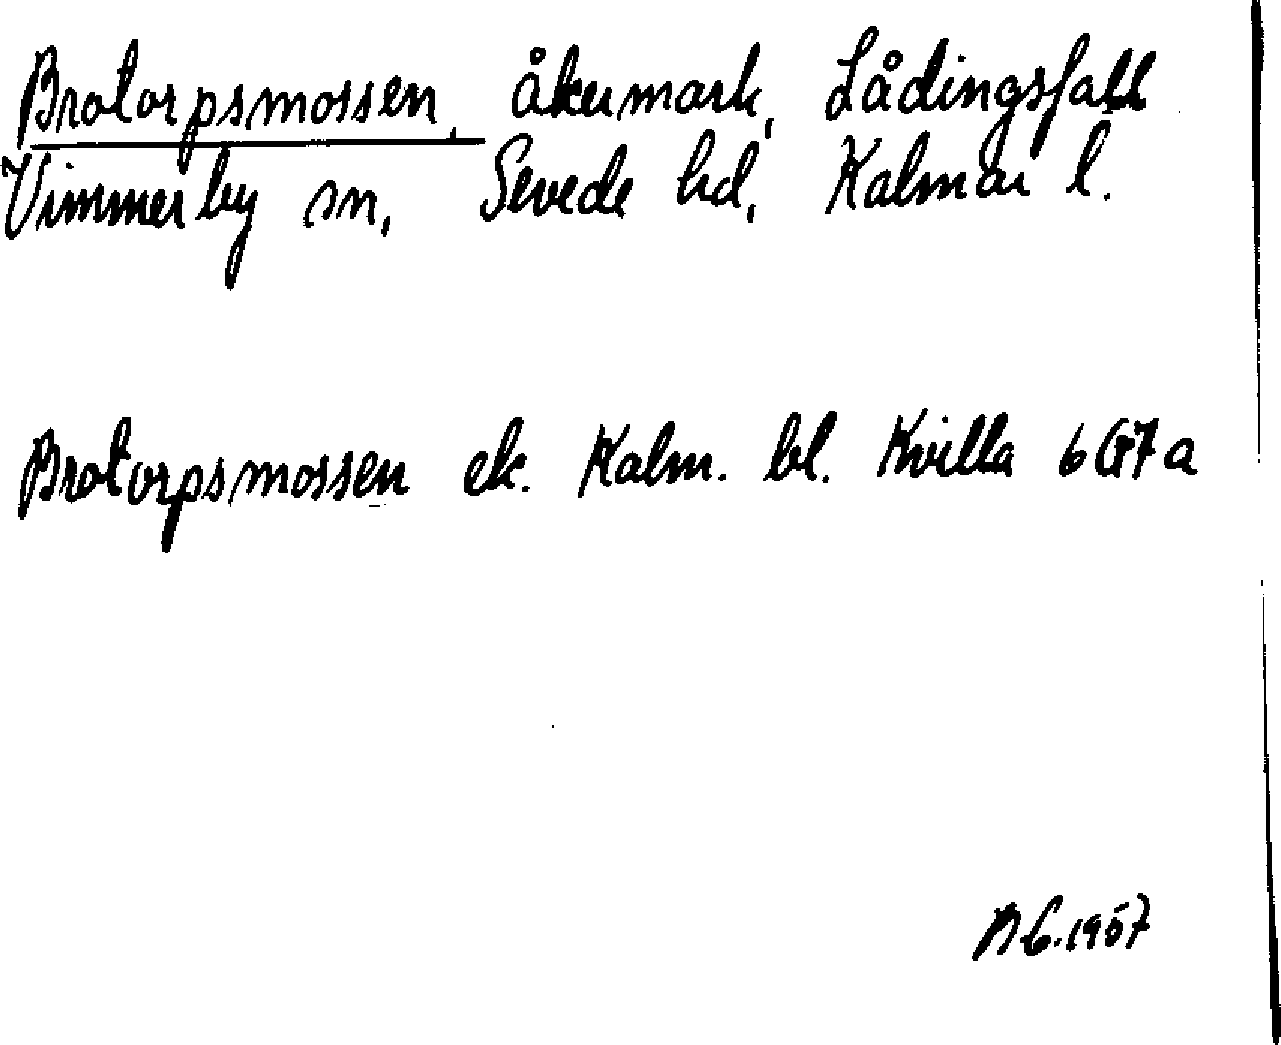 Brotorpsmossen, åkermark, Lådingsfall
Vimmerby sn, Sevede hd, Kalmar l.
Brotorpsmossen ek. Kalm. bl. Kvilla 6G7a
1957